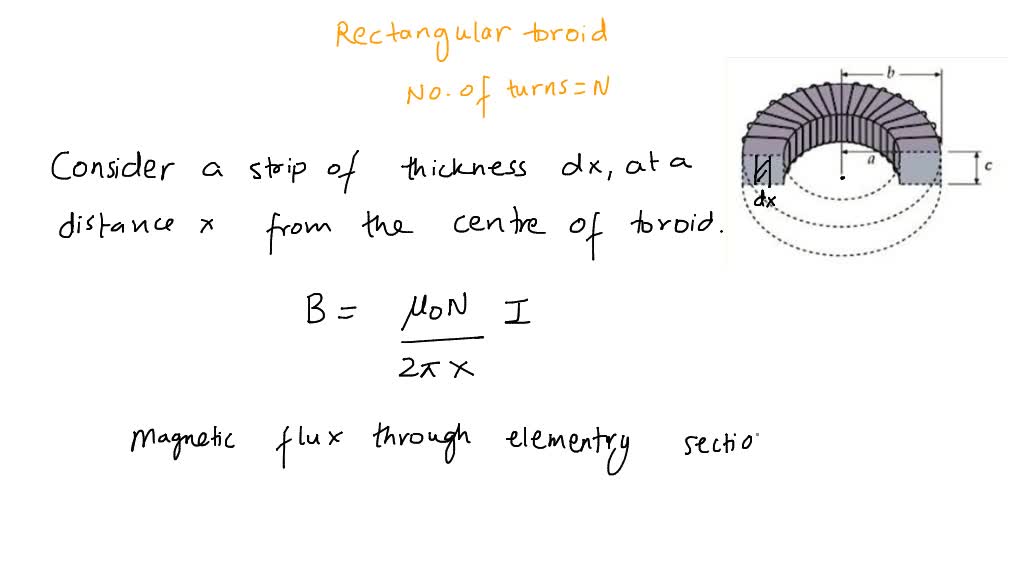 Rectangular toroid
No. of turns = N
b
Consider a strip of thickness dx, at a
a
c
dx
distance x from the centre of toroid.
B = μ0N I
2π x
Magnetic flux through elementry sectio